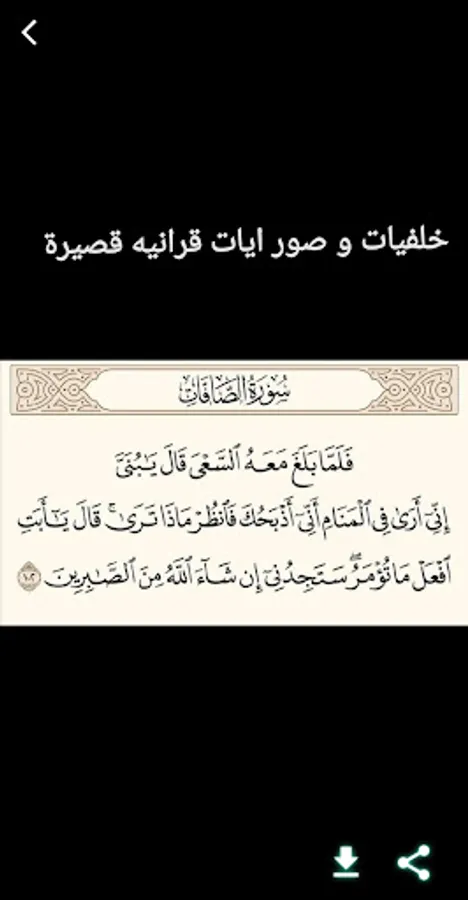 خلفيات و صور ايات قرانيه قصيرة
سُورَةُ الصَّافَّاتِ
فَلَمَّا بَلَغَ مَعَهُ ٱلسَّعْىَ قَالَ يَـٰبُنَىَّ
إِنِّىٓ أَرَىٰ فِى ٱلْمَنَامِ أَنِّىٓ أَذْبَحُكَ فَٱنظُرْ مَاذَا تَرَىٰ ۚ قَالَ يَـٰٓأَبَتِ
ٱفْعَلْ مَا تُؤْمَرُ ۖ سَتَجِدُنِىٓ إِن شَآءَ ٱللَّهُ مِنَ ٱلصَّـٰبِرِينَ ١٠٢